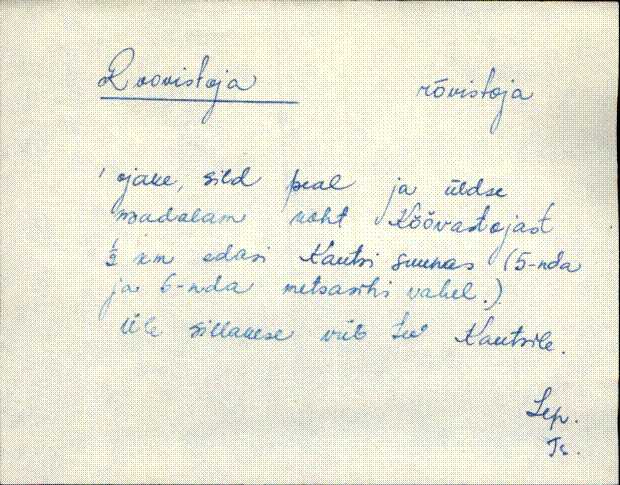 Roovistoja rōvistoja
ojake, sild peal ja üldse
madalam koht Köövastojast
½ km edasi Kautsi suunas (5-nda
ja 6-nda metsasihi vahel.)
Üle sillakese viib tee Kautsile.
Lep.
Tr.